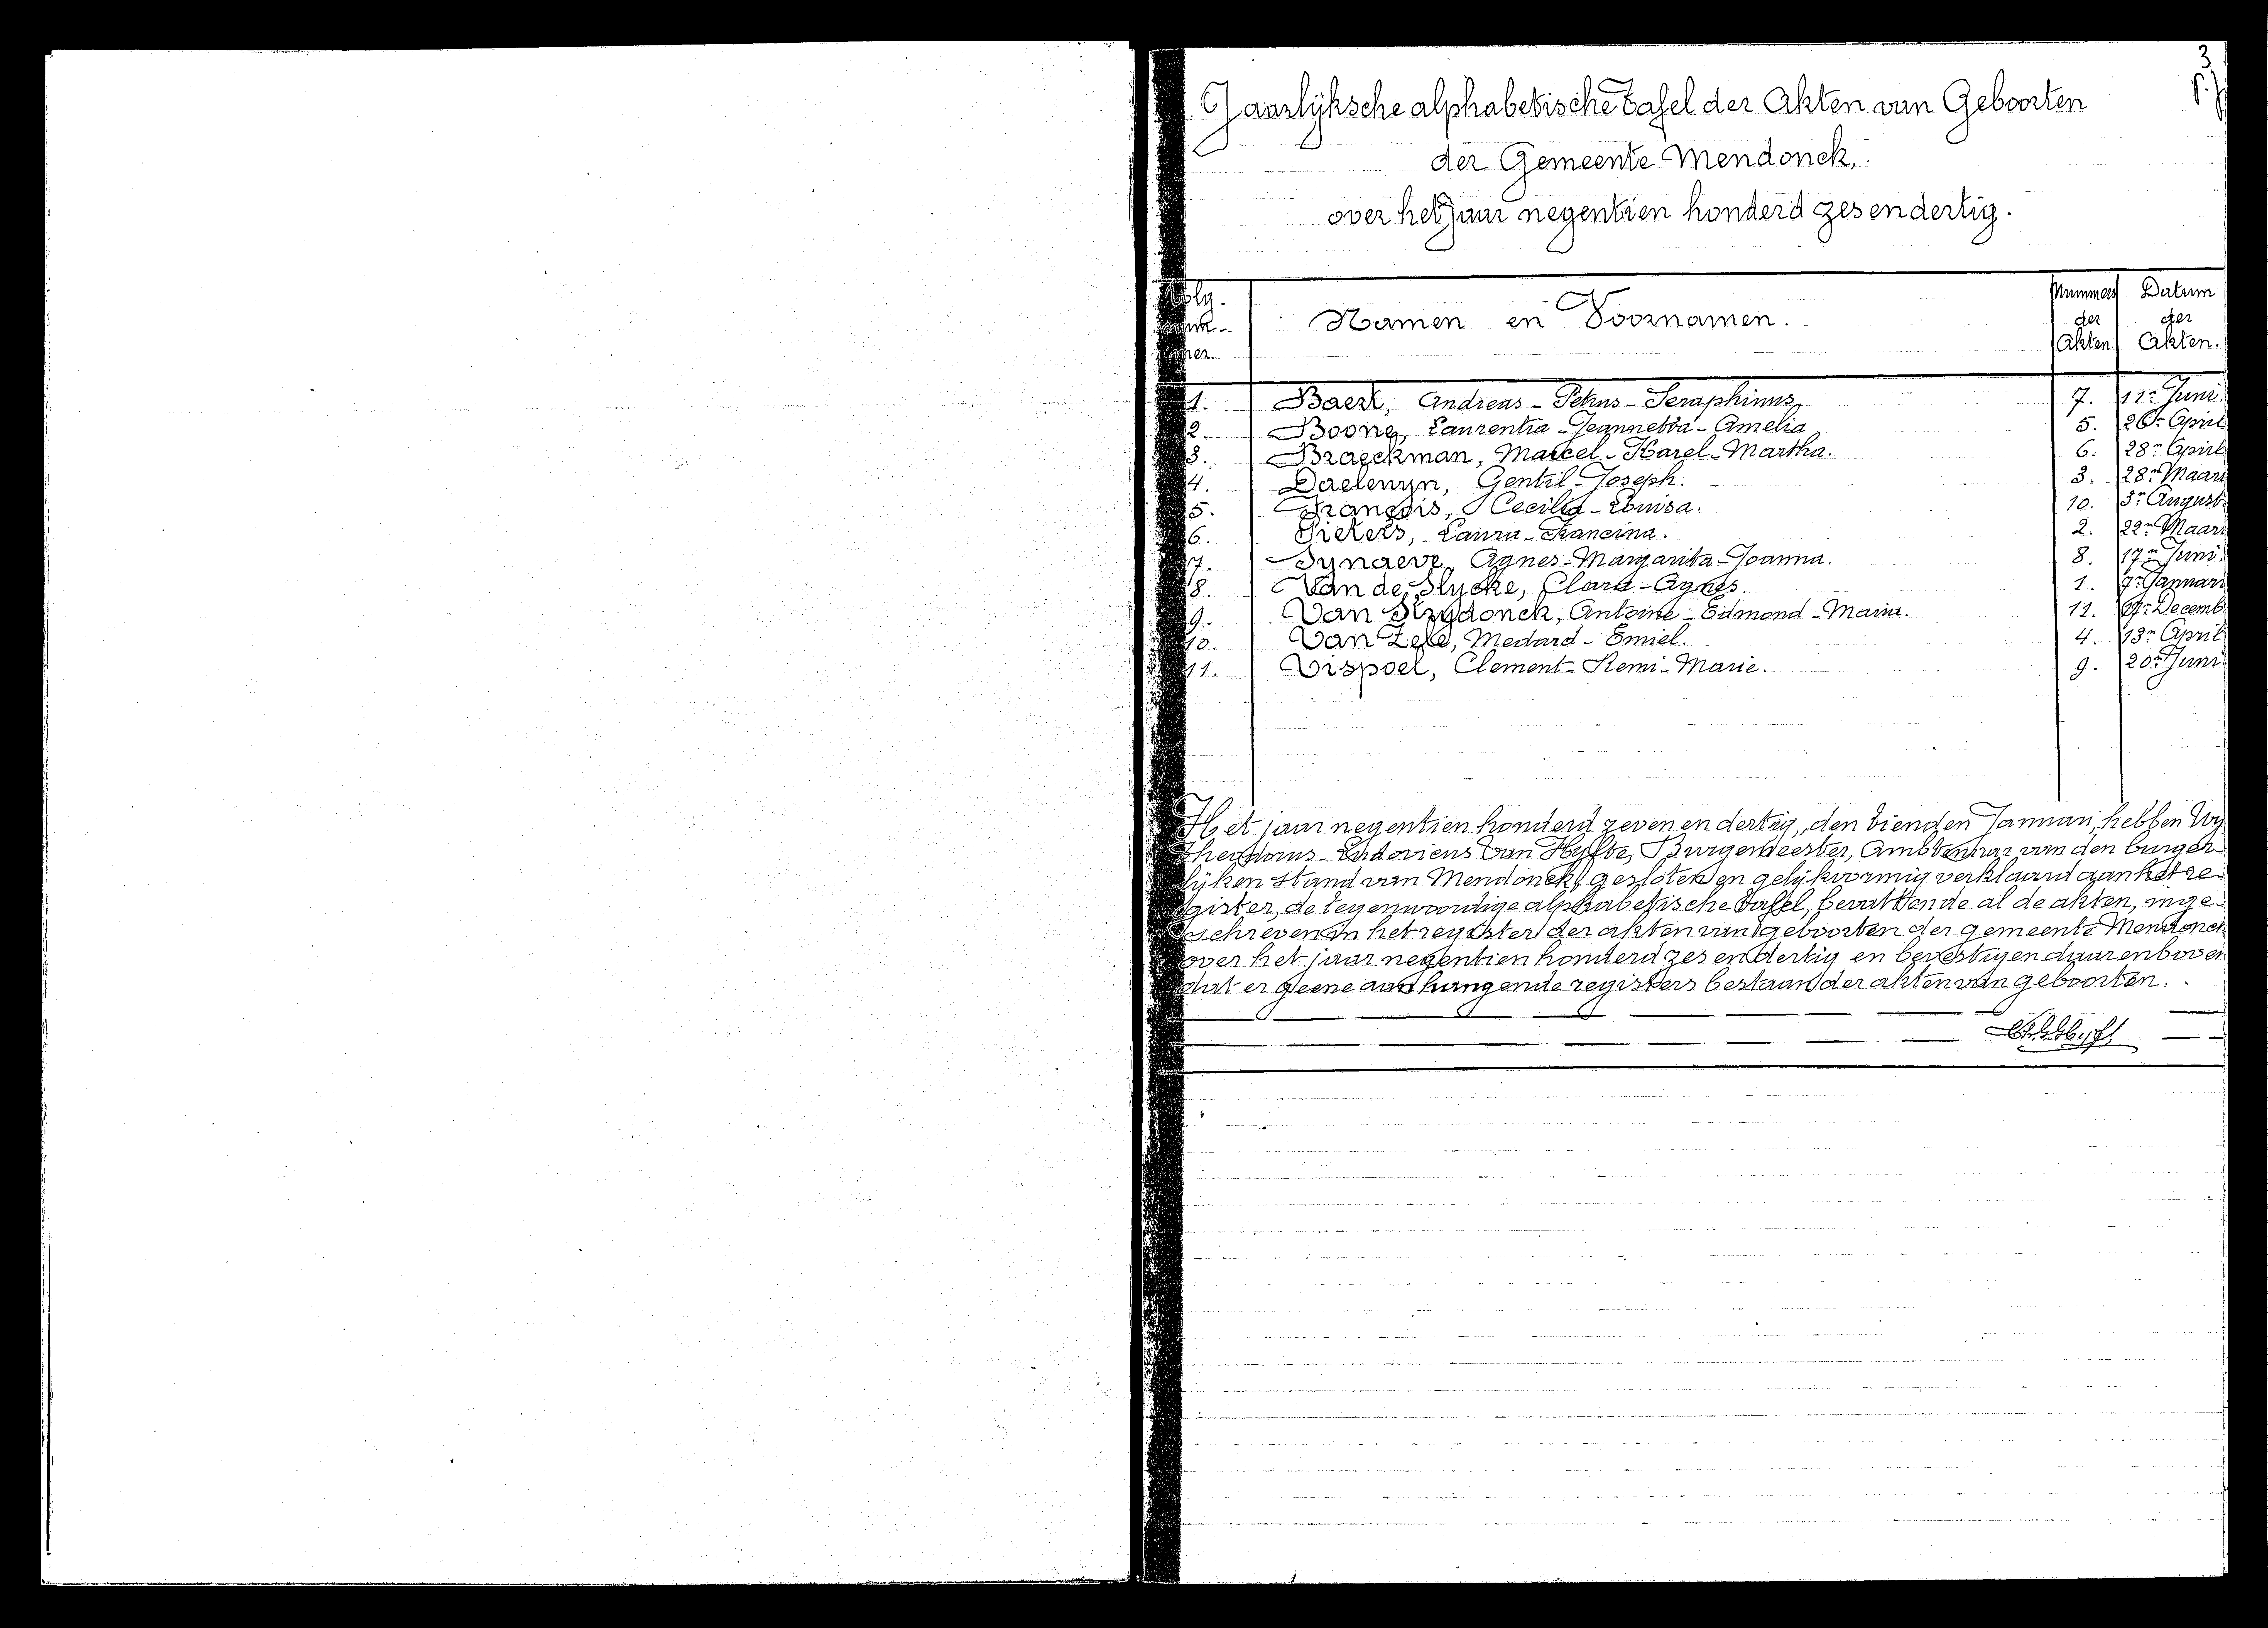 3
Jaarlijksche alphabetische tafel der Akten van Geboorten
der Gemeente Mendonck,
over het Jaar negentien honderd zes en dertig.
Volg- Nummers Datum
num- Namen en Voornamen. der der
mer. Akten. Akten.
1. Baert, Andreas - Petrus - Seraphinus, 7. 11n Juni.
2. Boone, Laurentia - Jeannetta - Amelia 5. 26n April
3. Braeckman, Marcel - Karel - Martha. 6. 28n April
4. Daelemyn, Gentil - Joseph. 3. 28n Maart
5. François, Cecilia - Louisa. 10. 3n August.
6. Pieters, Laura - Francina. 2. 22n Maart
7. Synaeve, Agnes - Margarita - Joanna. 8. 17n Juni.
8. Van de Slycke, Clara - Agnes. 1. Januari
9. Van Strydonck, Antoine - Edmond - Maria. 11. Decemb
10. Van Zele, Medard - Emiel. 4. 13n April
11. Vispoel, Clement - Remi - Marie. 9. 20n Juni
Het jaar negentien honderd zeven en dertig, den tienden Januari, hebben Wij
Theodorus - Ludovicus Van Hyfte, Burgemeester, Ambtenaar van den burger-
lijken stand van Mendonck, gesloten en gelijkvormig verklaard aan het re-
gister, de tegenwoordige alphabetische tafel, bevattende al de akten, inge-
schreven in het register der akten van geboorten der gemeente Mendonck
over het jaar negentien honderd zes en dertig en bevestigen daarenboven
dat er geene aanhangende registers bestaan der akten van geboorten.